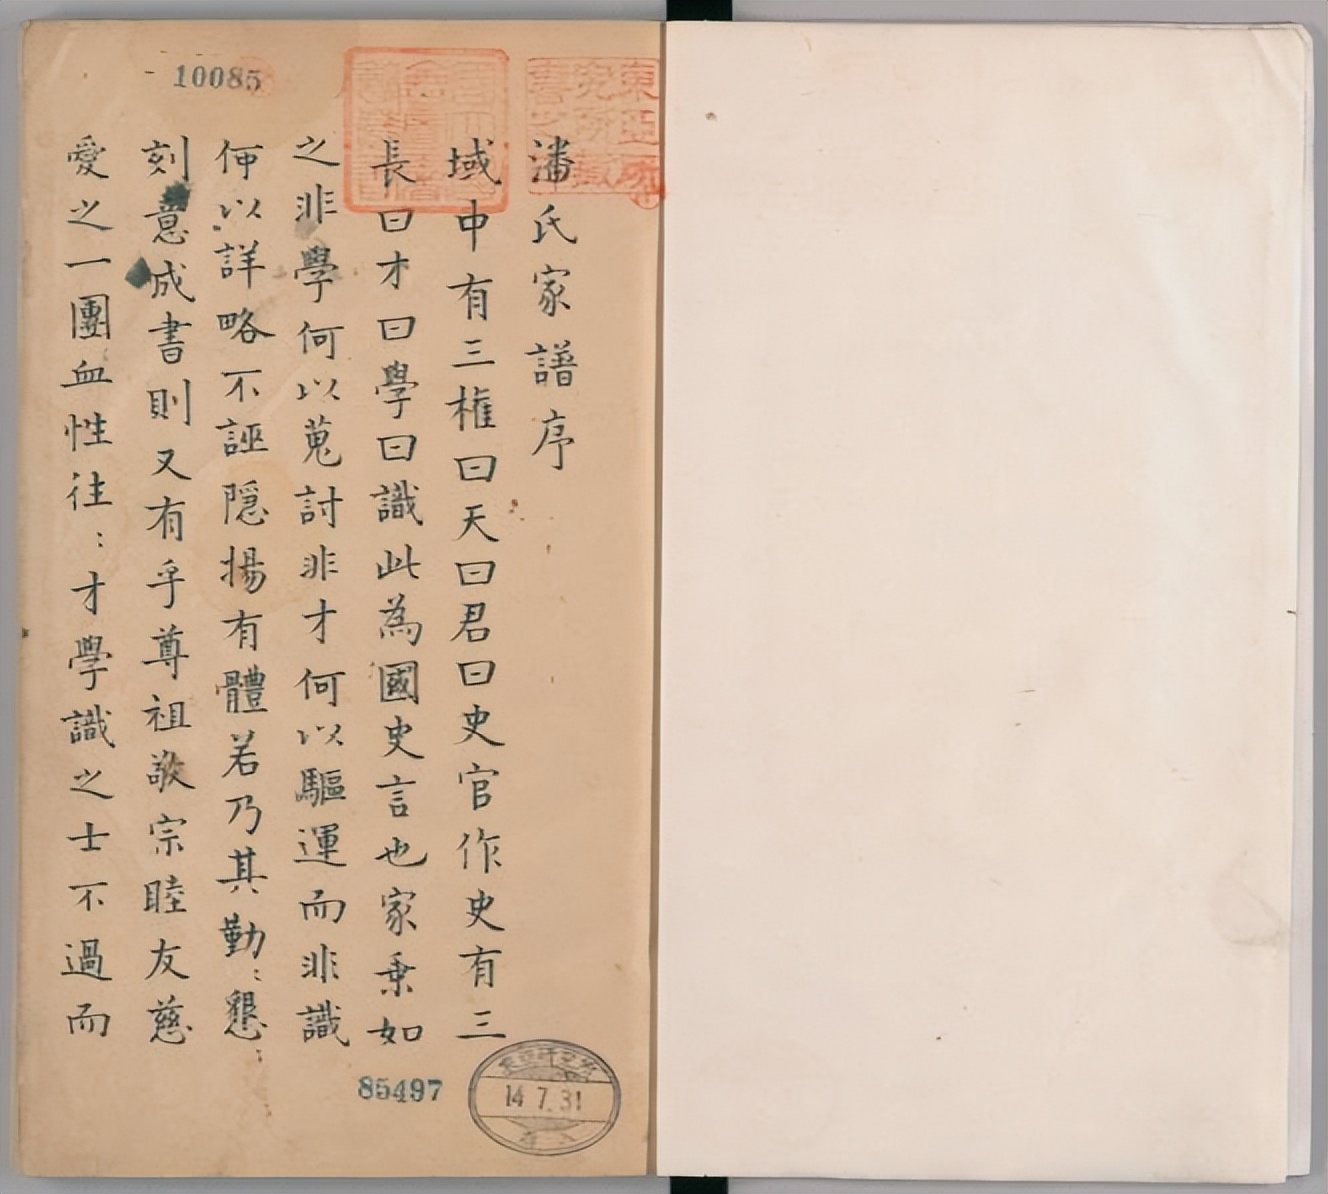 潘氏家譜序
域中有三權曰天曰君曰史官作史有三
長曰才曰學曰識此為國史言也家乗如
之非學何以蒐討非才何以驅運而非識
何以詳略不誣隠揚有體若乃其勤：懇：
刻意成書則又有乎尊祖敬宗睦友慈
愛之一團血性往：才學識之士不過而
10085
85497
14.7.31